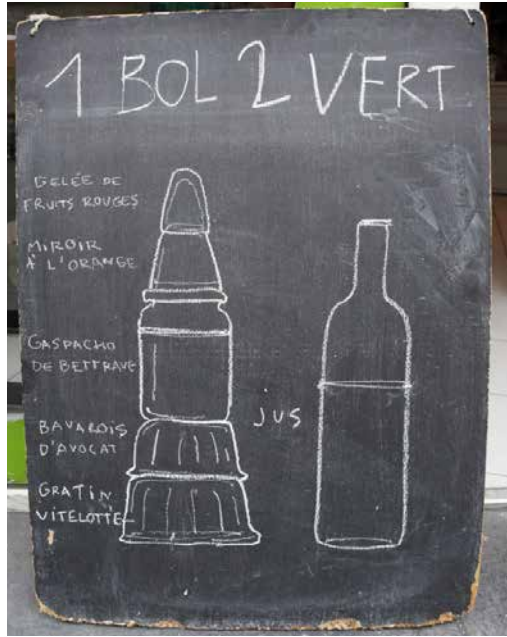 1 BOL 2 VERT
GELÉE DE
FRUITS ROUGES
MIROIR
À L'ORANGE
GASPACHO
DE BETTRAVE
BAVAROIS
D'AVOCAT
jus
GRATIN
VITELOTTE